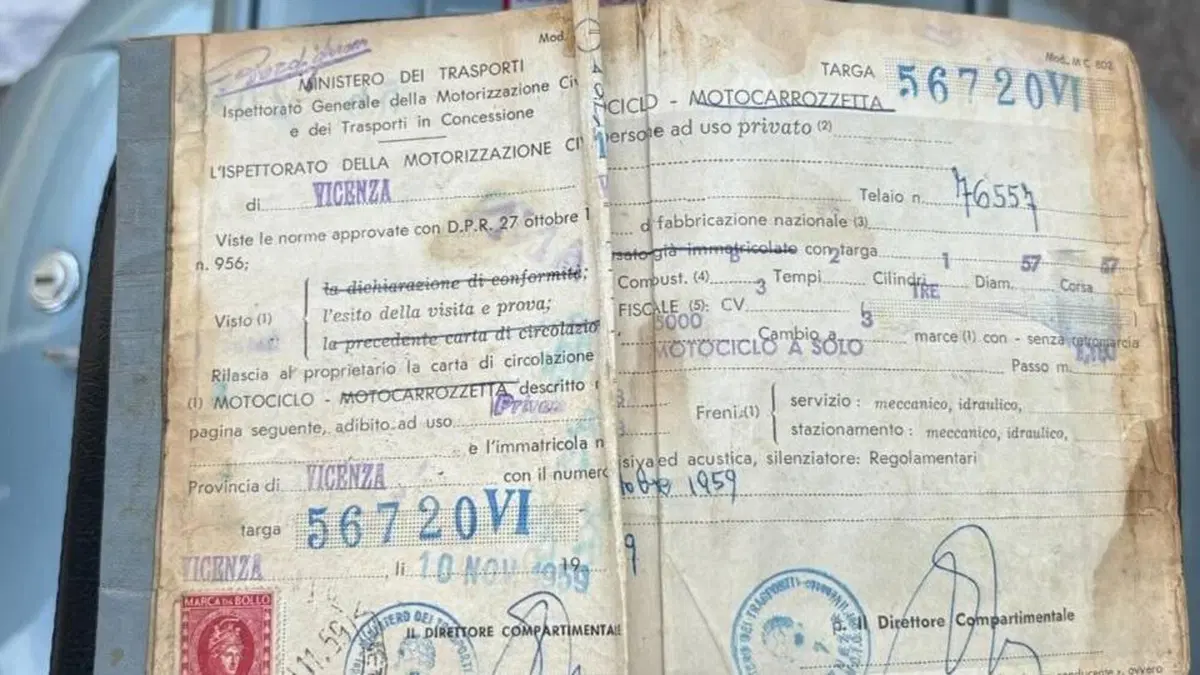 Mod.
MINISTERO DEI TRASPORTI
Ispettorato Generale della Motorizzazione Civ
e dei Trasporti in Concessione
L'ISPETTORATO DELLA MOTORIZZAZIONE CI
di VICENZA
Viste le norme approvate con D.P.R. 27 ottobre 1
n. 956;
Visto (1)
la dichiarazione di conformità;
l'esito della visita e prova;
la precedente carta di circolazio
Rilascia al proprietario la carta di circolazione
(1) MOTOCICLO - MOTOCARROZZETTA descritto
pagina seguente, adibito ad uso Privat
e l'immatricola n
Provincia di VICENZA con il numero
targa 56720VI
VICENZA, li 10 NOV 1959 19
MARCA DA BOLLO
11.59
MINISTERO DEI TRASPORTI
IL DIRETTORE COMPARTIMENTALE
Mod. M C 802
TARGA 56720VI
CICLO - MOTOCARROZZETTA
persone ad uso privato (2)
Telaio n. 76557
d fabbricazione nazionale (3)
sato già immatricolato con targa
Combust. (4) B Tempi 2 Cilindri 1 Diam. 57 Corsa 57
FISCALE (5): CV. 3 TRE
5000 Cambio a 3 marce (1) con - senza retromarcia
MOTOCICLO A SOLO Passo m.
Freni (1)
servizio : meccanico, idraulico,
stazionamento : meccanico, idraulico,
siva ed acustica, silenziatore: Regolamentari
1959
9
DEI TRASPORTI
Il Direttore Compartimentale
ovvero